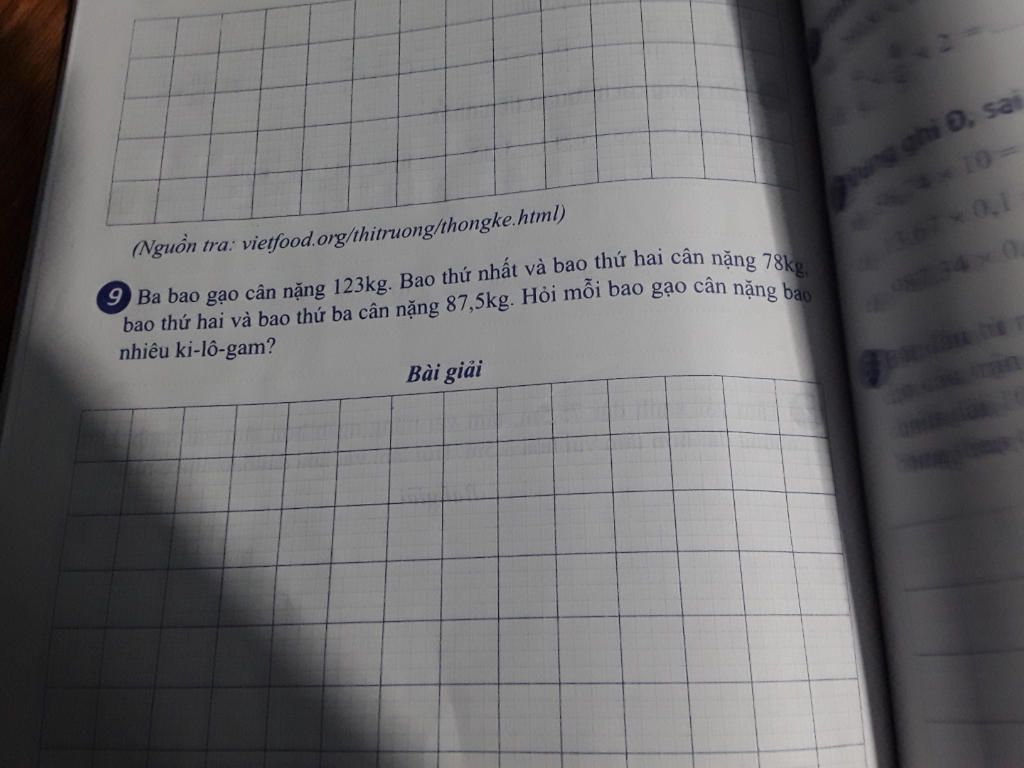 (Nguồn tra: vietfood.org/thitruong/thongke.html)
9 Ba bao gạo cân nặng 123kg. Bao thứ nhất và bao thứ hai cân nặng 78kg,
bao thứ hai và bao thứ ba cân nặng 87,5kg. Hỏi mỗi bao gạo cân nặng bao
nhiêu ki-lô-gam?
Bài giải
× 2 =
ghi Đ, sai
× 10 =
× 0,1